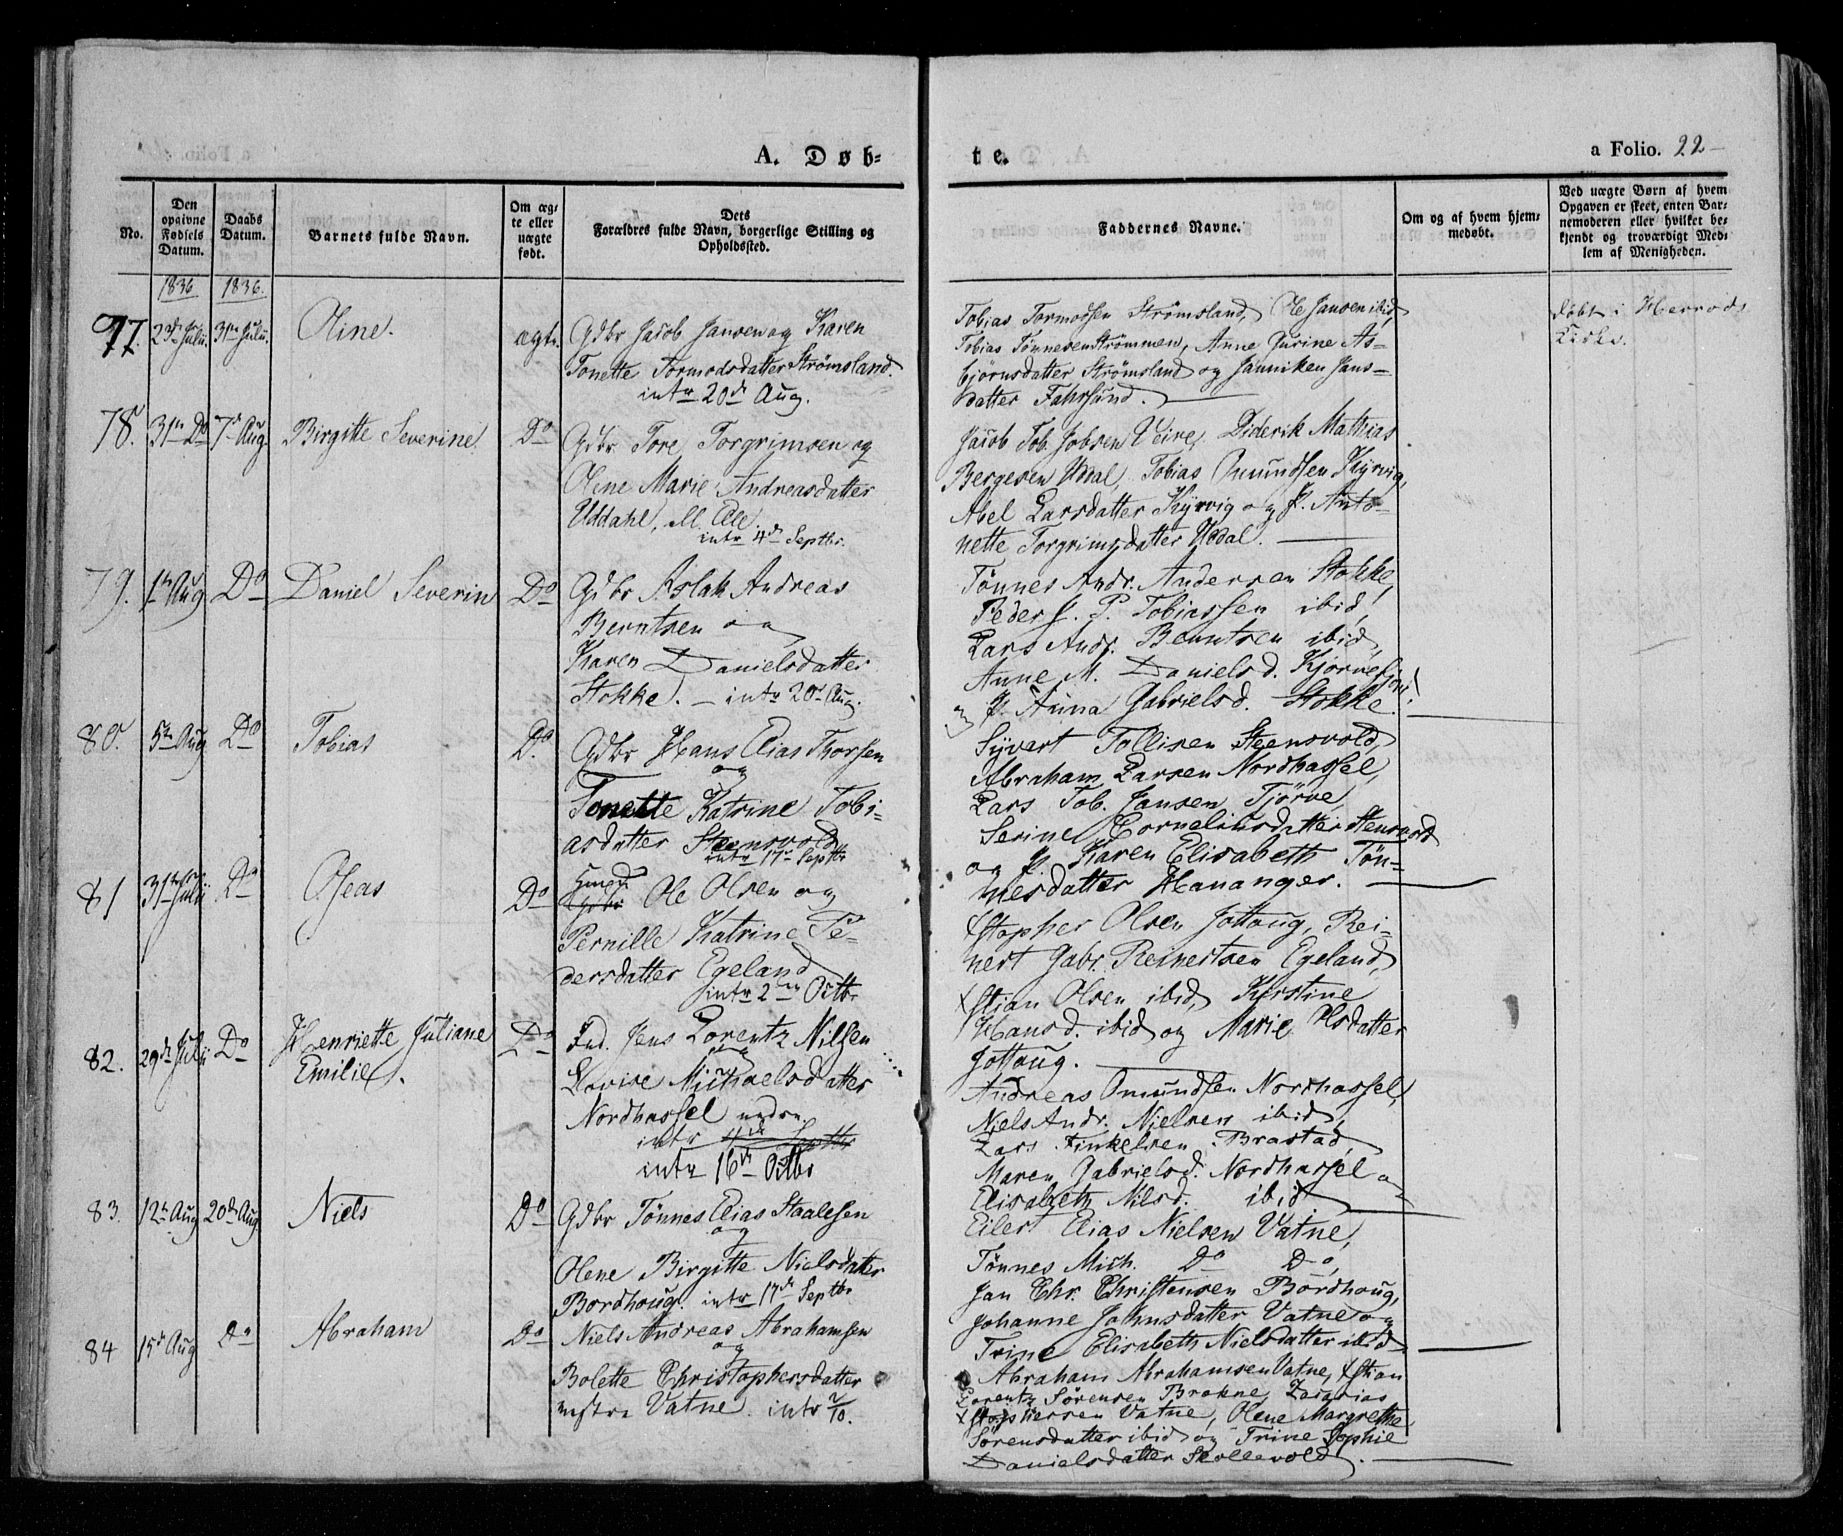 A. Døb-
te.
a Folio. 22-
No.
Den opgivne Fødsels Datum.
Daabs Datum.
Barnets fulde Navn.
Om æg-
te eller
uægte
født.
Dets
Forældres fulde Navn, borgerlige Stilling og
Opholdssted.
Faddernes Navne.
Om og af hvem hjem-
medøbt.
Ved uægte Børn af hvem
Opgaven er skeet, enten Bar-
nemoderen eller hvilket be-
kjendt og troværdigt Med-
lem af Menigheden.
1836 1836.
77. 23de Julii. 31te Julii. Oline. ægte.
Gdbr Jacob Jansen og Karen
Tonette Tormodsdatter Strømsland.
intr 20de Aug.
Tobias Tormodsen Strømsland, Ole Jansen ibid,
Tobias Tønnesen Strømmen, Anne Gurine As-
bjørnsdatter Strømsland og Janniken Jans-
datter Fahrsund.
døbt i Herrods
Kirke.
78. 31te Do 7de Aug. Birgitte Severine Do
Gdbr Tore Torgrimsen og
Olene Marie Andreasdatter
Uddahl,
intr 4de Septbr.
Jacob Tob. Jobsen Veire, Diderik Mathias
Bergesen Uddal, Tobias Omundsen Kyrvig,
Abel Larsdatter Kyrvig og P. Anto-
nette Torgrimsdatter Uddal.
79. 1te Aug Do Daniel Severin Do
Gdbr Aslak Andreas
Berntsen og
Karen Danielsdatter
Stokke. - intr 20de Aug.
Tønnes Andr. Andersen Stokke,
Peder J. P. Tobiassen ibid,
Lars Andr. Berntsen ibid,
Anne M. Danielsd. Kjørrefjord
og P. Anna Gabrielsd. Stokke.
80. 5te Aug Do Tobias Do
Gdbr Hans Elias Thorsen
og
Tonette Katrine Tobi-
asdatter Steensvold
intr 17de Septbr
Syvert Tollisen Steensvold,
Abraham Larsen Nordhassel,
Lars Tob. Jansen Tjørve,
Serine Corneliusdatter Stensvold
og P. Karen Elisabeth Tøn-
nesdatter Hananger.
81 31te Julii Do Oseas Do
Huusmd
Gdbr Ole Olsen og
Pernille Katrine Pe-
dersdatter Egeland
intr 2den Octbr
Xstopher Olsen Jottoug, Rei-
nert Gabr. Reinertsen Egeland,
Xstian Olsen ibid, Kirstine
Hansd. ibid og Marie Olsdatter
Jottoug.
82. 29de Julii Do Henriette Juliane Do
Emilie.
Ind. Jens Lorentz Nilsen
og
Lovise Michaelsdatter
Nordhassel nedre
intr 4de Septbr
intr 16de Octbr
Andreas Omundsen Nordhassel,
Niels Andr. Nielsen ibid,
Lars Finkelsen Brastad,
Maren Gabrielsd. Nordhassel og
Elisabeth Nilsd. ibid
83. 12te Aug 20de Aug Niels Do
Gdbr Tønnes Elias Staalesen
og
Olene Birgitte Nielsdatter
Bordhoug. intr 17de Septbr
Eilert Elias Nielsen Vatne,
Tønnes Mich. Do Do,
Jan Chr. Christensen Bordhoug,
Johanne Johnsdatter Vatne og
Trine Elisabeth Nielsdatter ibid
84 15de Aug Do Abraham Do
Niels Andreas Abrahamsen
og
Bolette Christophersdatter
vestre Vatne. intr 2/10.
Abraham Abrahamsen Vatne, Xstian
Lorentz Sørensen Brekne, Zacarias
Xstophersen Vatne, Olene Margrethe
Sørensdatter ibid og Trine Sophie
Danielsdatter Skollevold.